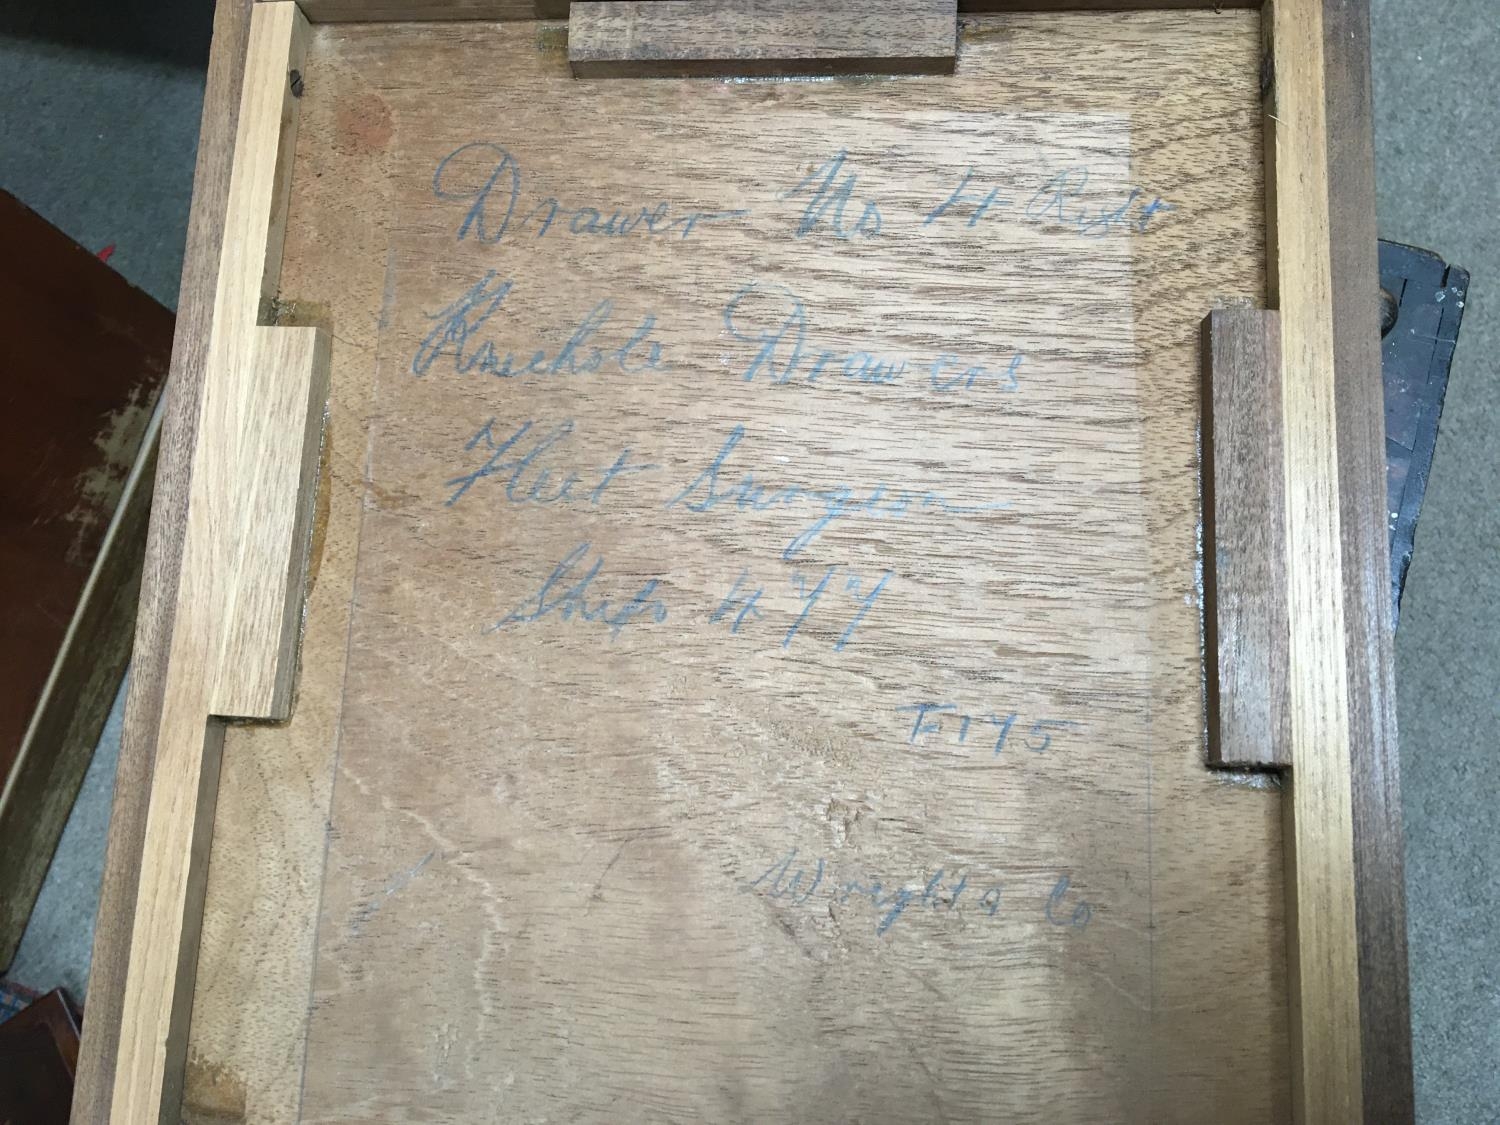 Drawer No 4 Right
Kneehole Drawers
Fleet Surgeon
Ships 477
F 175
Wright & Co